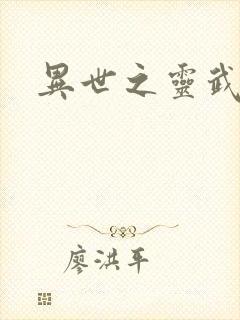 異世之靈武
廖洪平